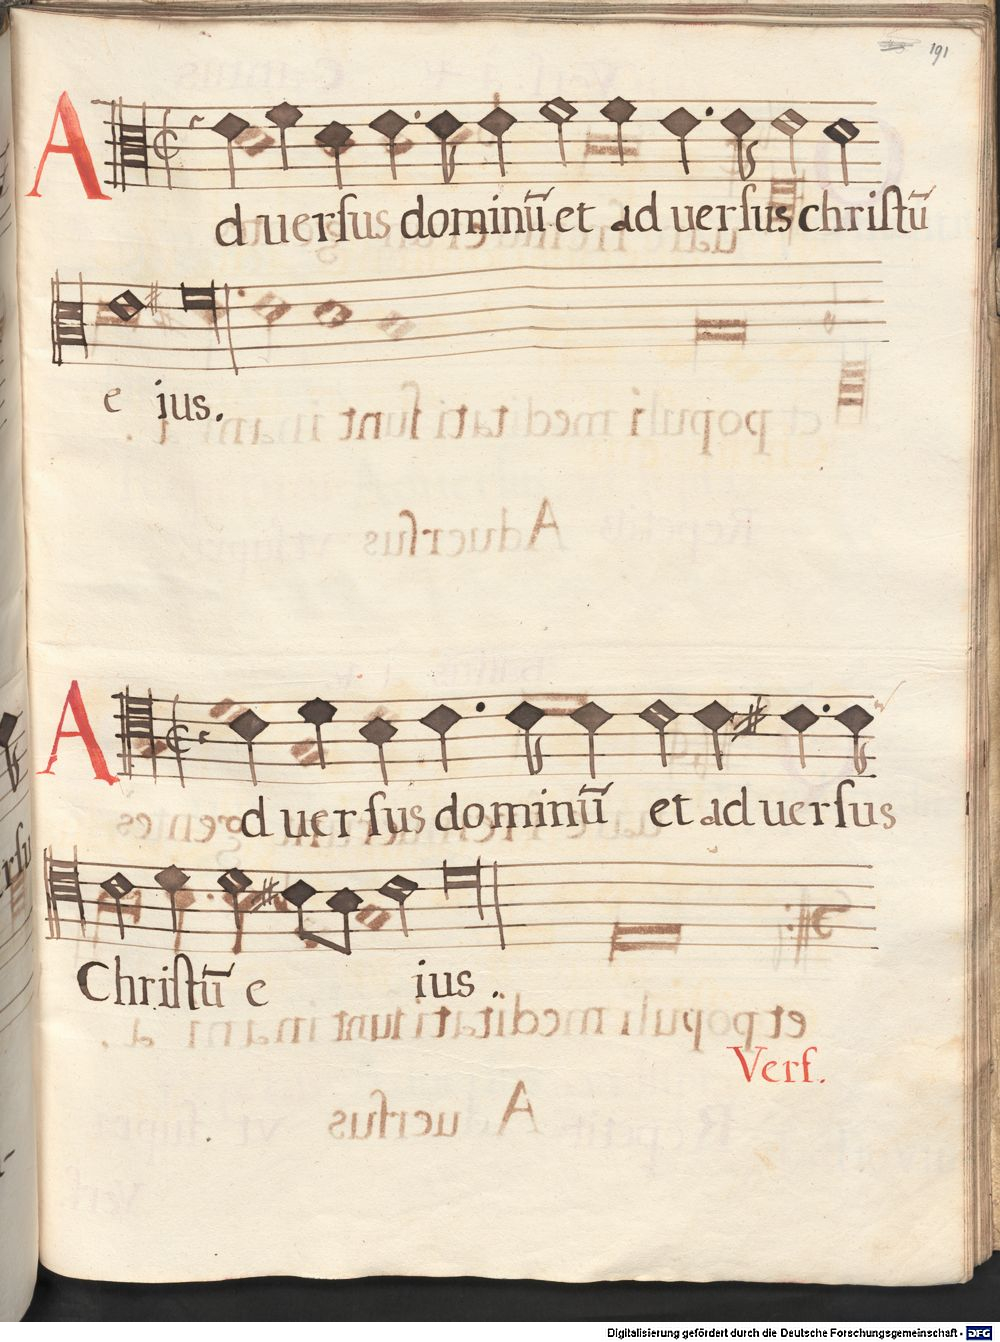 191
Aduersus dominū et aduersus christū
eius.
Aduersus dominū et aduersus
Christū eius.
Vers.
Digitalisierung gefördert durch die Deutsche Forschungsgemeinschaft - DFG